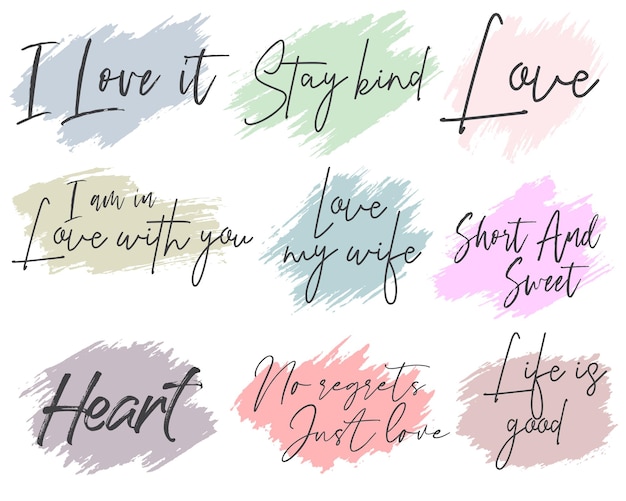 I Love it
Stay kind
Love
I am in
Love with you
Love
my wife
Short And
Sweet
Heart
No regrets
Just love
Life is
good